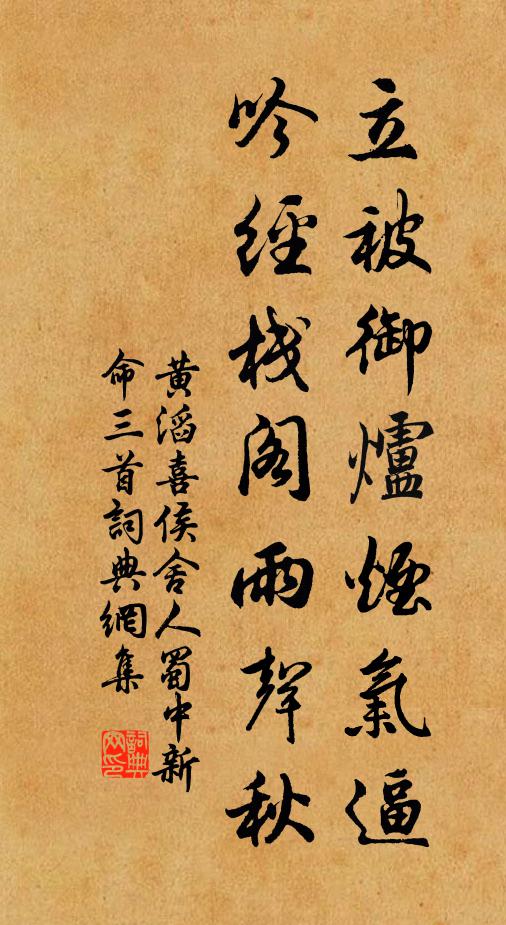 立被御爐煙氣逼
吟經棧閣雨聲秋
黃滔喜侯舍人蜀中新
命三首詞典網集
詞典網印